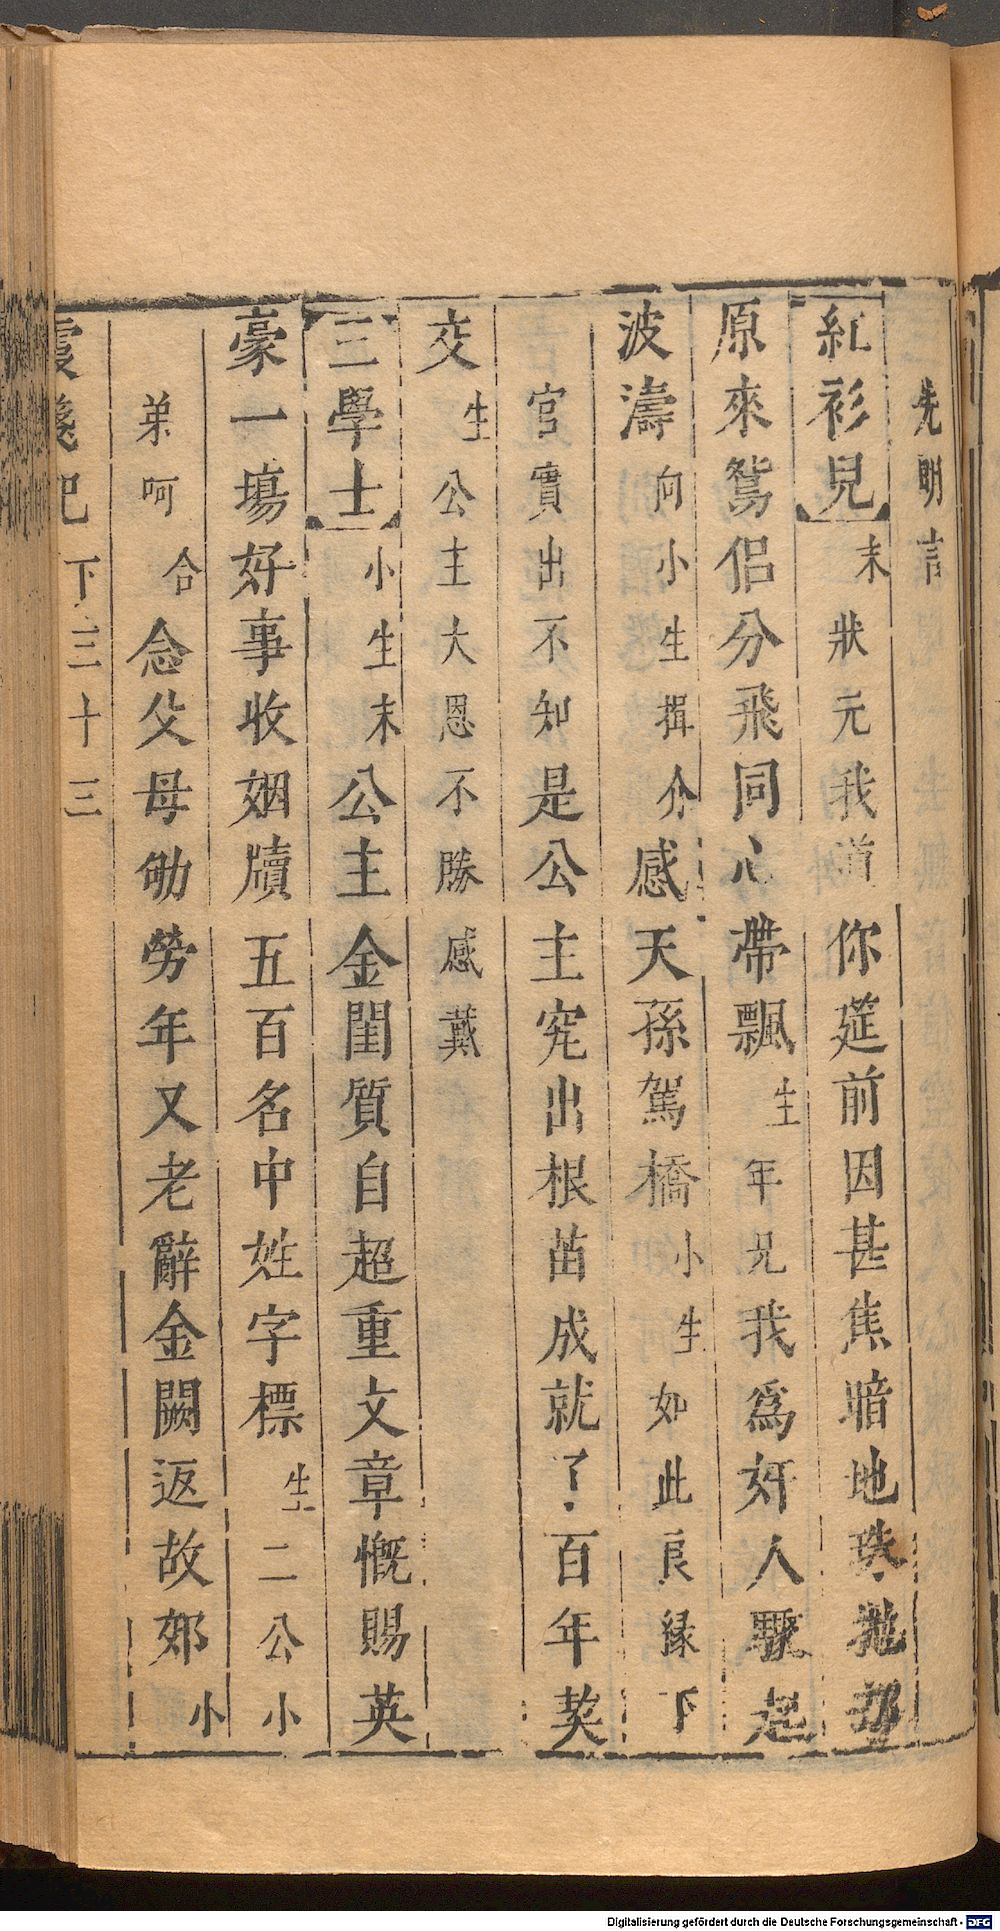 先明言
紅衫兒 末 狀元我道 你莚前因甚焦暗地珠抛却
原來鴛侶分飛同心帶飄 生 年兄我爲奸人驟起
波濤 向小生揖介 感天孫駕橋 小生 如此良緣下
官實出不知 是公主究出根苗成就了百年契
交 生 公主大恩不勝感戴
三學士 小生末 公主金閨質自超重文章慨賜英
豪一塲好事收姻牘五百名中姓字標 生 二公小
弟呵 合 念父母劬勞年又老辭金闕返故郊 小
霞箋記 下 三十三
Digitalisierung gefördert durch die Deutsche Forschungsgemeinschaft - DFG